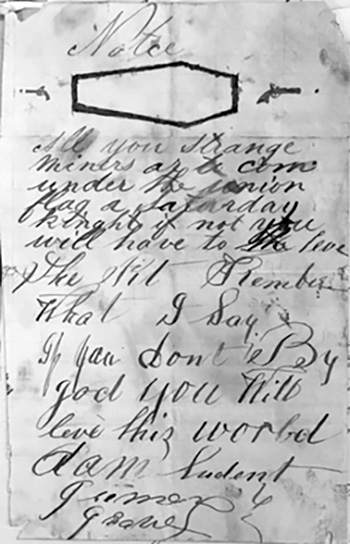 Notce
All you strange
miners ar to com
under the union
flag a saturday
knight if not you
will have to the leve
The Pit Rember
What I Say
If you dont By
god you Will
leve this world
dam Sudent